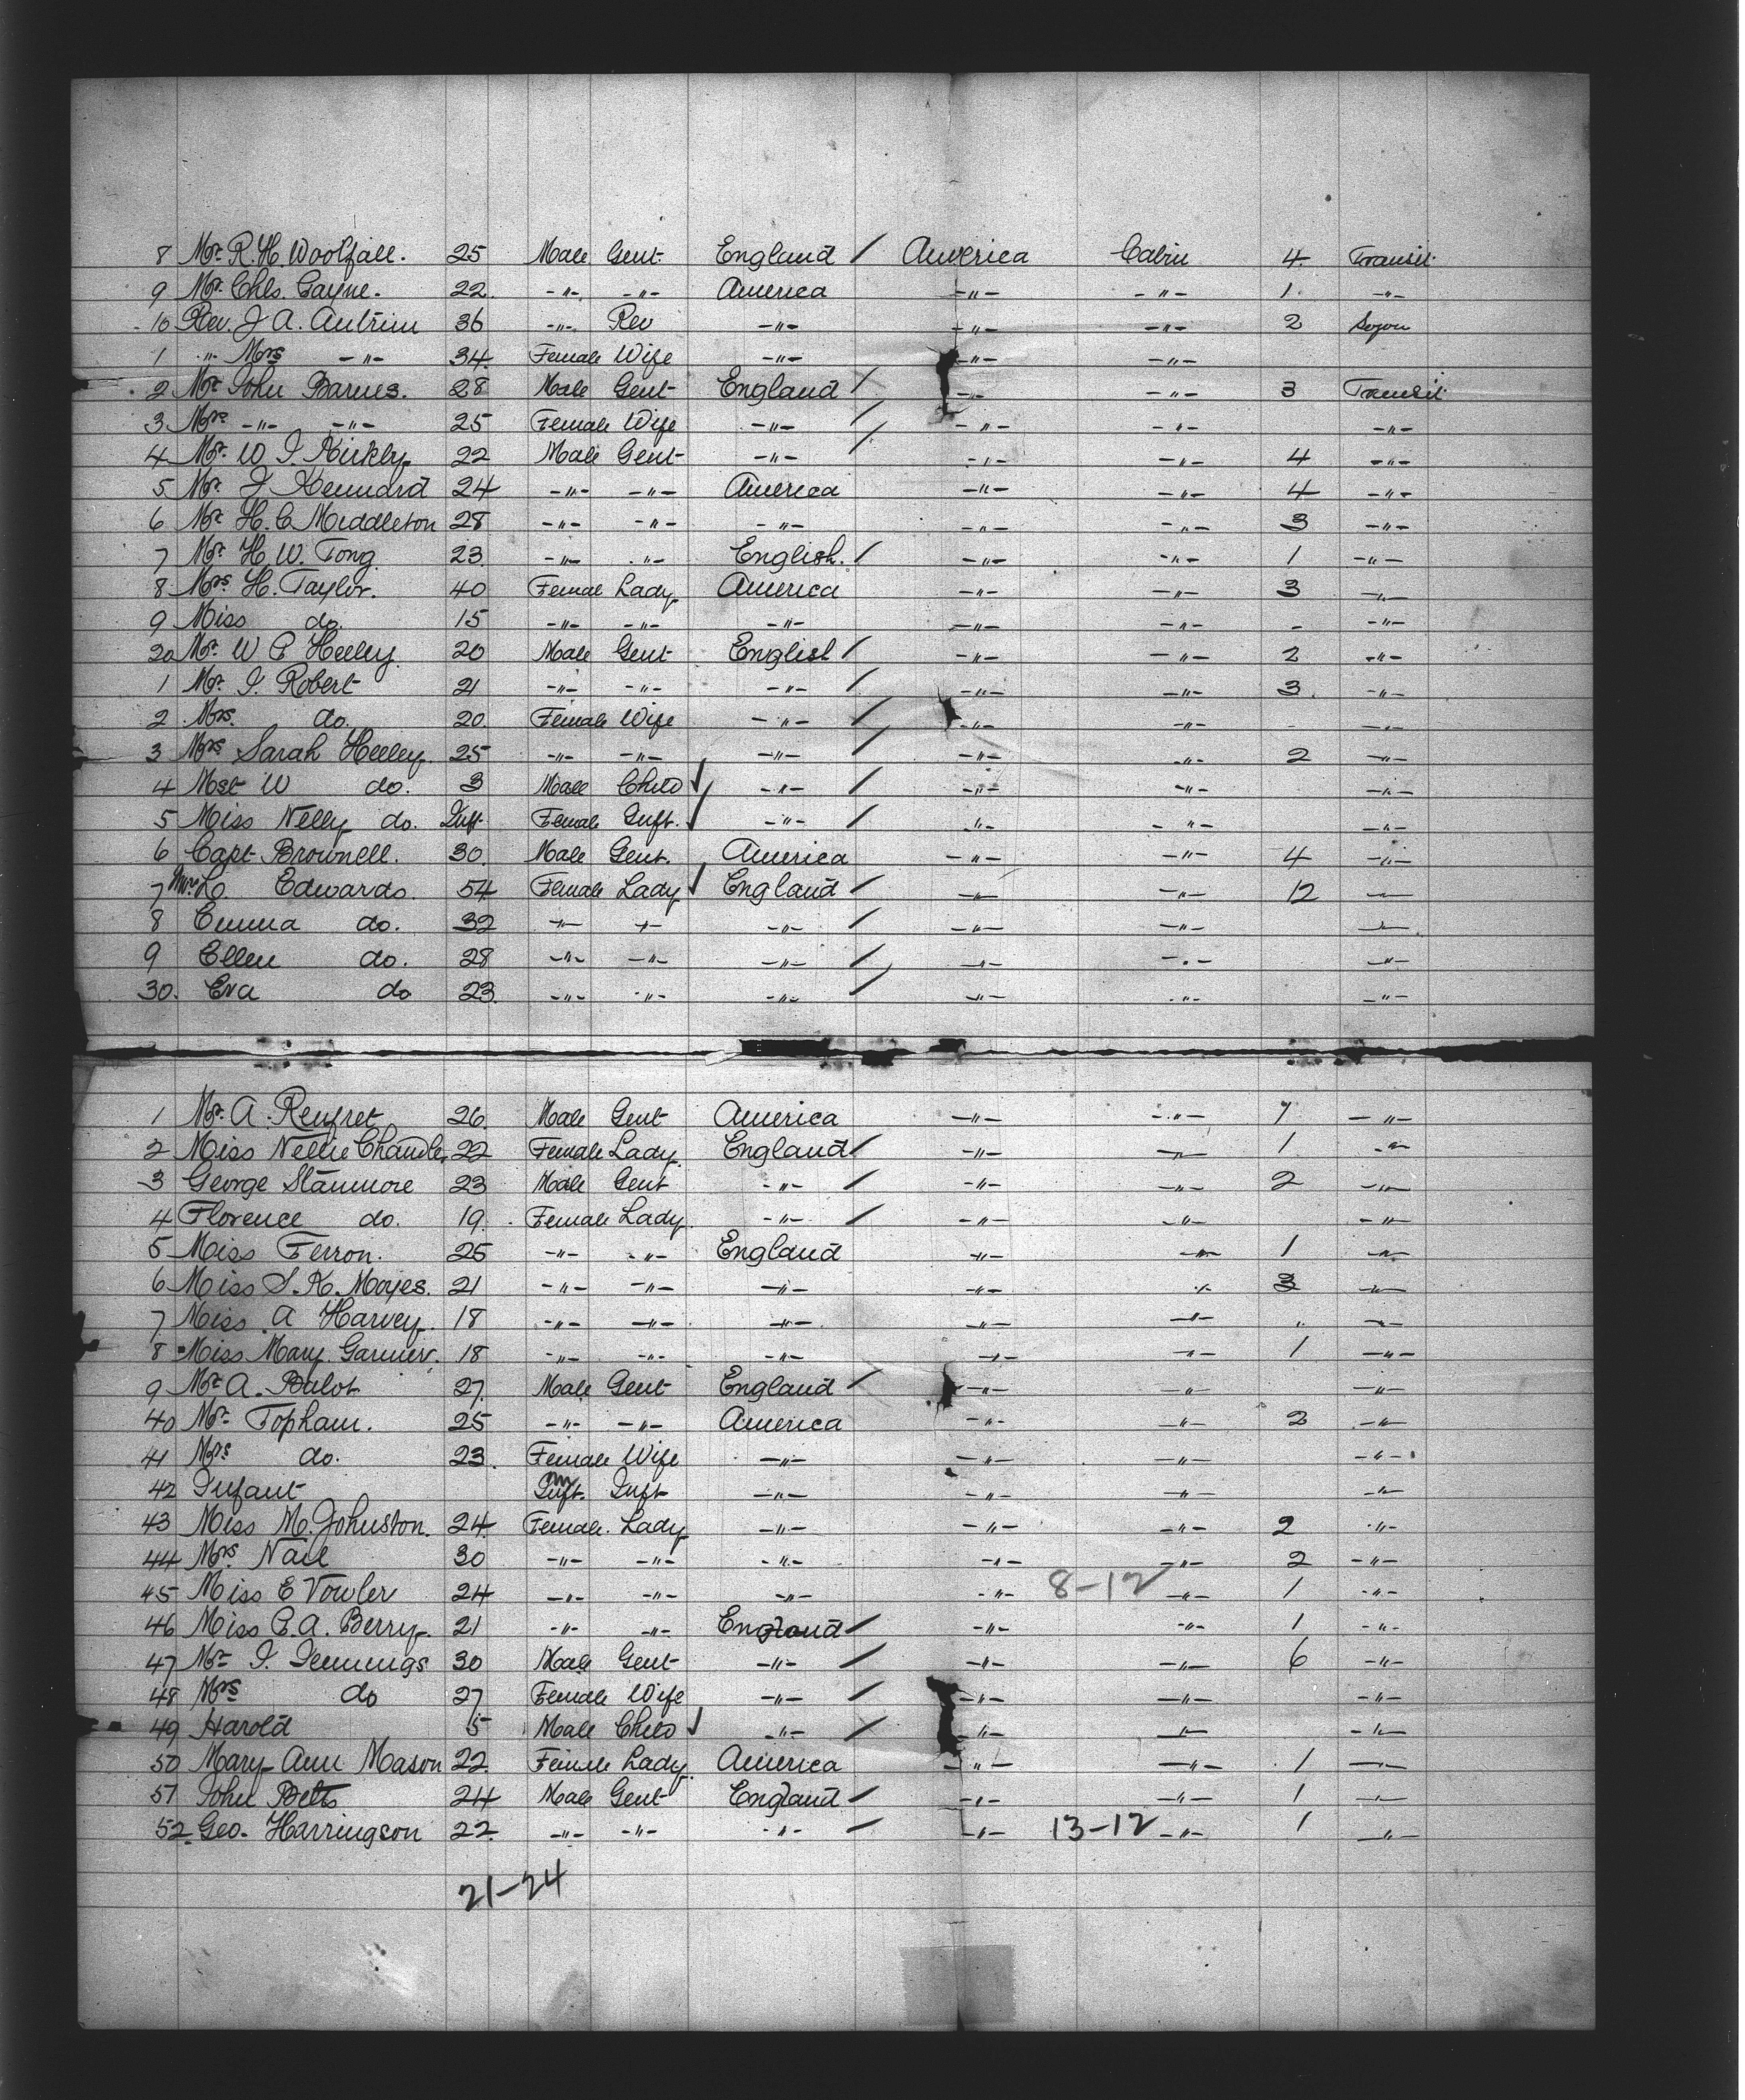 8 Mr. R. H. Woolfall. 25 Male Gent. England / America Cabin 4 Transit
9 Mr. Chls. Gayne. 22 -"- -"- America -"- -"- 1. -"-
10 Rev. J A. Antrim 36 -"- Rev -"- -"- -"- 2 Sojou
1 " Mrs -"- 34 Female Wife -"- -"- -"-
2 Mr John Barnes. 28 Male Gent England / -"- -"- 3 Transit
3 Mrs -"- -"- 25 Female Wife -"- / -"- -"- -"-
4 Mr. W. I. Kirkly 22 Male Gent -"- / -"- -"- 4 -"-
5 Mr. J Kennard 24 -"- -"- America -"- -"- 4 -"-
6 Mr H. C. Middleton 28 -"- -"- -"- -"- -"- 3 -"-
7 Mr. H. W. Tong. 23 -"- -"- English. / -"- -"- 1 -"-
8 Mrs H. Taylor. 40 Femal Lady America -"- -"- 3 -"-
9 Miss do. 15 -"- -"- -"- -"- -"- - -"-
20 Mr. W P Heeley 20 Male Gent English / -"- -"- 2 -"-
1 Mr. I. Robert 21 -"- -"- -"- / -"- -"- 3. -"-
2 Mrs. do. 20. Female Wife -"- / -"- -"- - -"-
3 Mrs Sarah Heeley. 25 -"- -"- -"- / -"- -"- 2 -"-
4 Mst W do. 3 Male Child ✓ -"- / -"- -"- -"-
5 Miss Nelly do. Inft. Female Inft. ✓ -"- / -"- -"- -"-
6 Capt Brownell. 30. Male Gent. America -"- -"- 4 -"-
7 Mrs Edwards. 54 Female Lady ✓ England / -"- -"- 12 -"-
8 Emma do. 32 -"- -"- -"- / -"- -"- -"-
9 Ellen do. 28 -"- -"- -"- / -"- -"- -"-
30. Eva do 23. -"- -"- -"- / -"- -"- -"-
1 Mr. A. Renfret 26 Male Gent America -"- -"- 7 -"-
2 Miss Nellie Chandler 22 Female Lady England / -"- -"- 1 -"-
3 George Stanmore 23 Male Gent -"- / -"- -"- 2 -"-
4 Florence do. 19. Female Lady -"- / -"- -"- -"-
5 Miss Ferron. 25 -"- -"- England -"- -"- 1 -"-
6 Miss S. K. Moyes. 21 -"- -"- -"- -"- -"- 3 -"-
7 Miss A Harvey. 18 -"- -"- -"- -"- -"- " -"-
8 Miss Mary. Garnier. 18 -"- -"- -"- -"- -"- 1 -"-
9 Mr A. Balot 27. Male Gent England / -"- -"- -"-
40 Mr. Topham. 25 -"- -"- America -"- -"- 2 -"-
41 Mrs do. 23. Female Wife -"- -"- -"- -"-
42 Infant m Inft. Inft -"- -"- -"- -"-
43 Miss M. Johnston. 24 Female. Lady -"- -"- -"- 2 -"-
44 Mrs. Nail 30 -"- -"- -"- -"- -"- 2 -"-
45 Miss E Vowler 24 -"- -"- -"- -"- 8-12 -"- 1 -"-
46 Miss C. A. Berry. 21 -"- -"- England / -"- -"- 1 -"-
47 Mr. I. Jennings 30 Male Gent -"- / -"- -"- 6 -"-
48 Mrs do 27 Female Wife -"- / -"- -"- -"-
49 Harold 5 Male Child ✓ -"- / -"- -"- -"-
50 Mary Ann Mason 22. Female Lady America -"- -"- 1 -"-
51 John Betts 24 Male Gent England / -"- -"- 1 -"-
52. Geo. Harringson 22. -"- -"- -"- / -"- 13-12 -"- 1 -"-
21-24